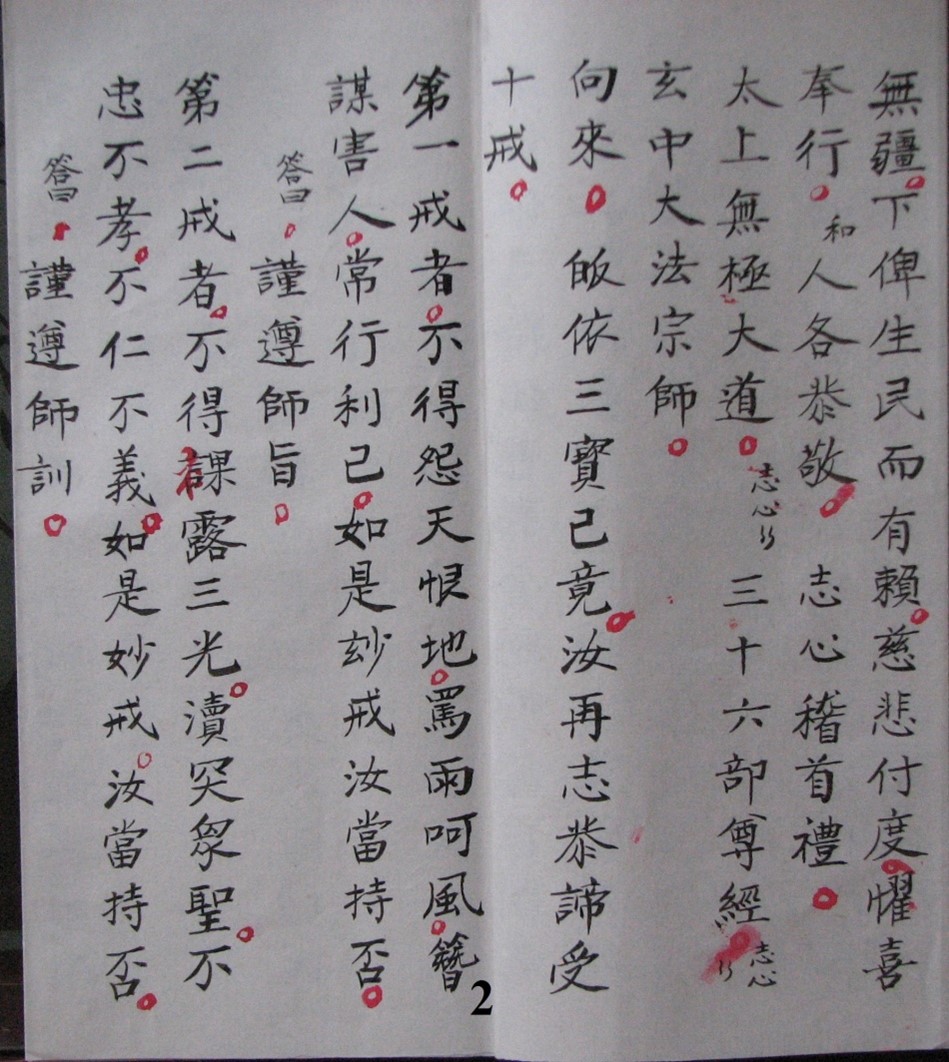 無疆。下俾生民而有賴。慈悲付度。懽喜
奉行。和人各恭敬。志心稽首禮。
太上無極大道。志心〻三十六部尊經。志心〻
玄中大法宗師。
向來。皈依三寶己竟。汝再志恭諦受
十戒。
第一戒者。不得怨天恨地。罵雨呵風。簪
謀害人。常行利己。如是玅戒汝當持否。
答曰。謹遵師旨。
第二戒者。不得裸露三光。瀆突眾聖。不
忠不孝。不仁不義。如是妙戒。汝當持否。
答曰。謹遵師訓。
2